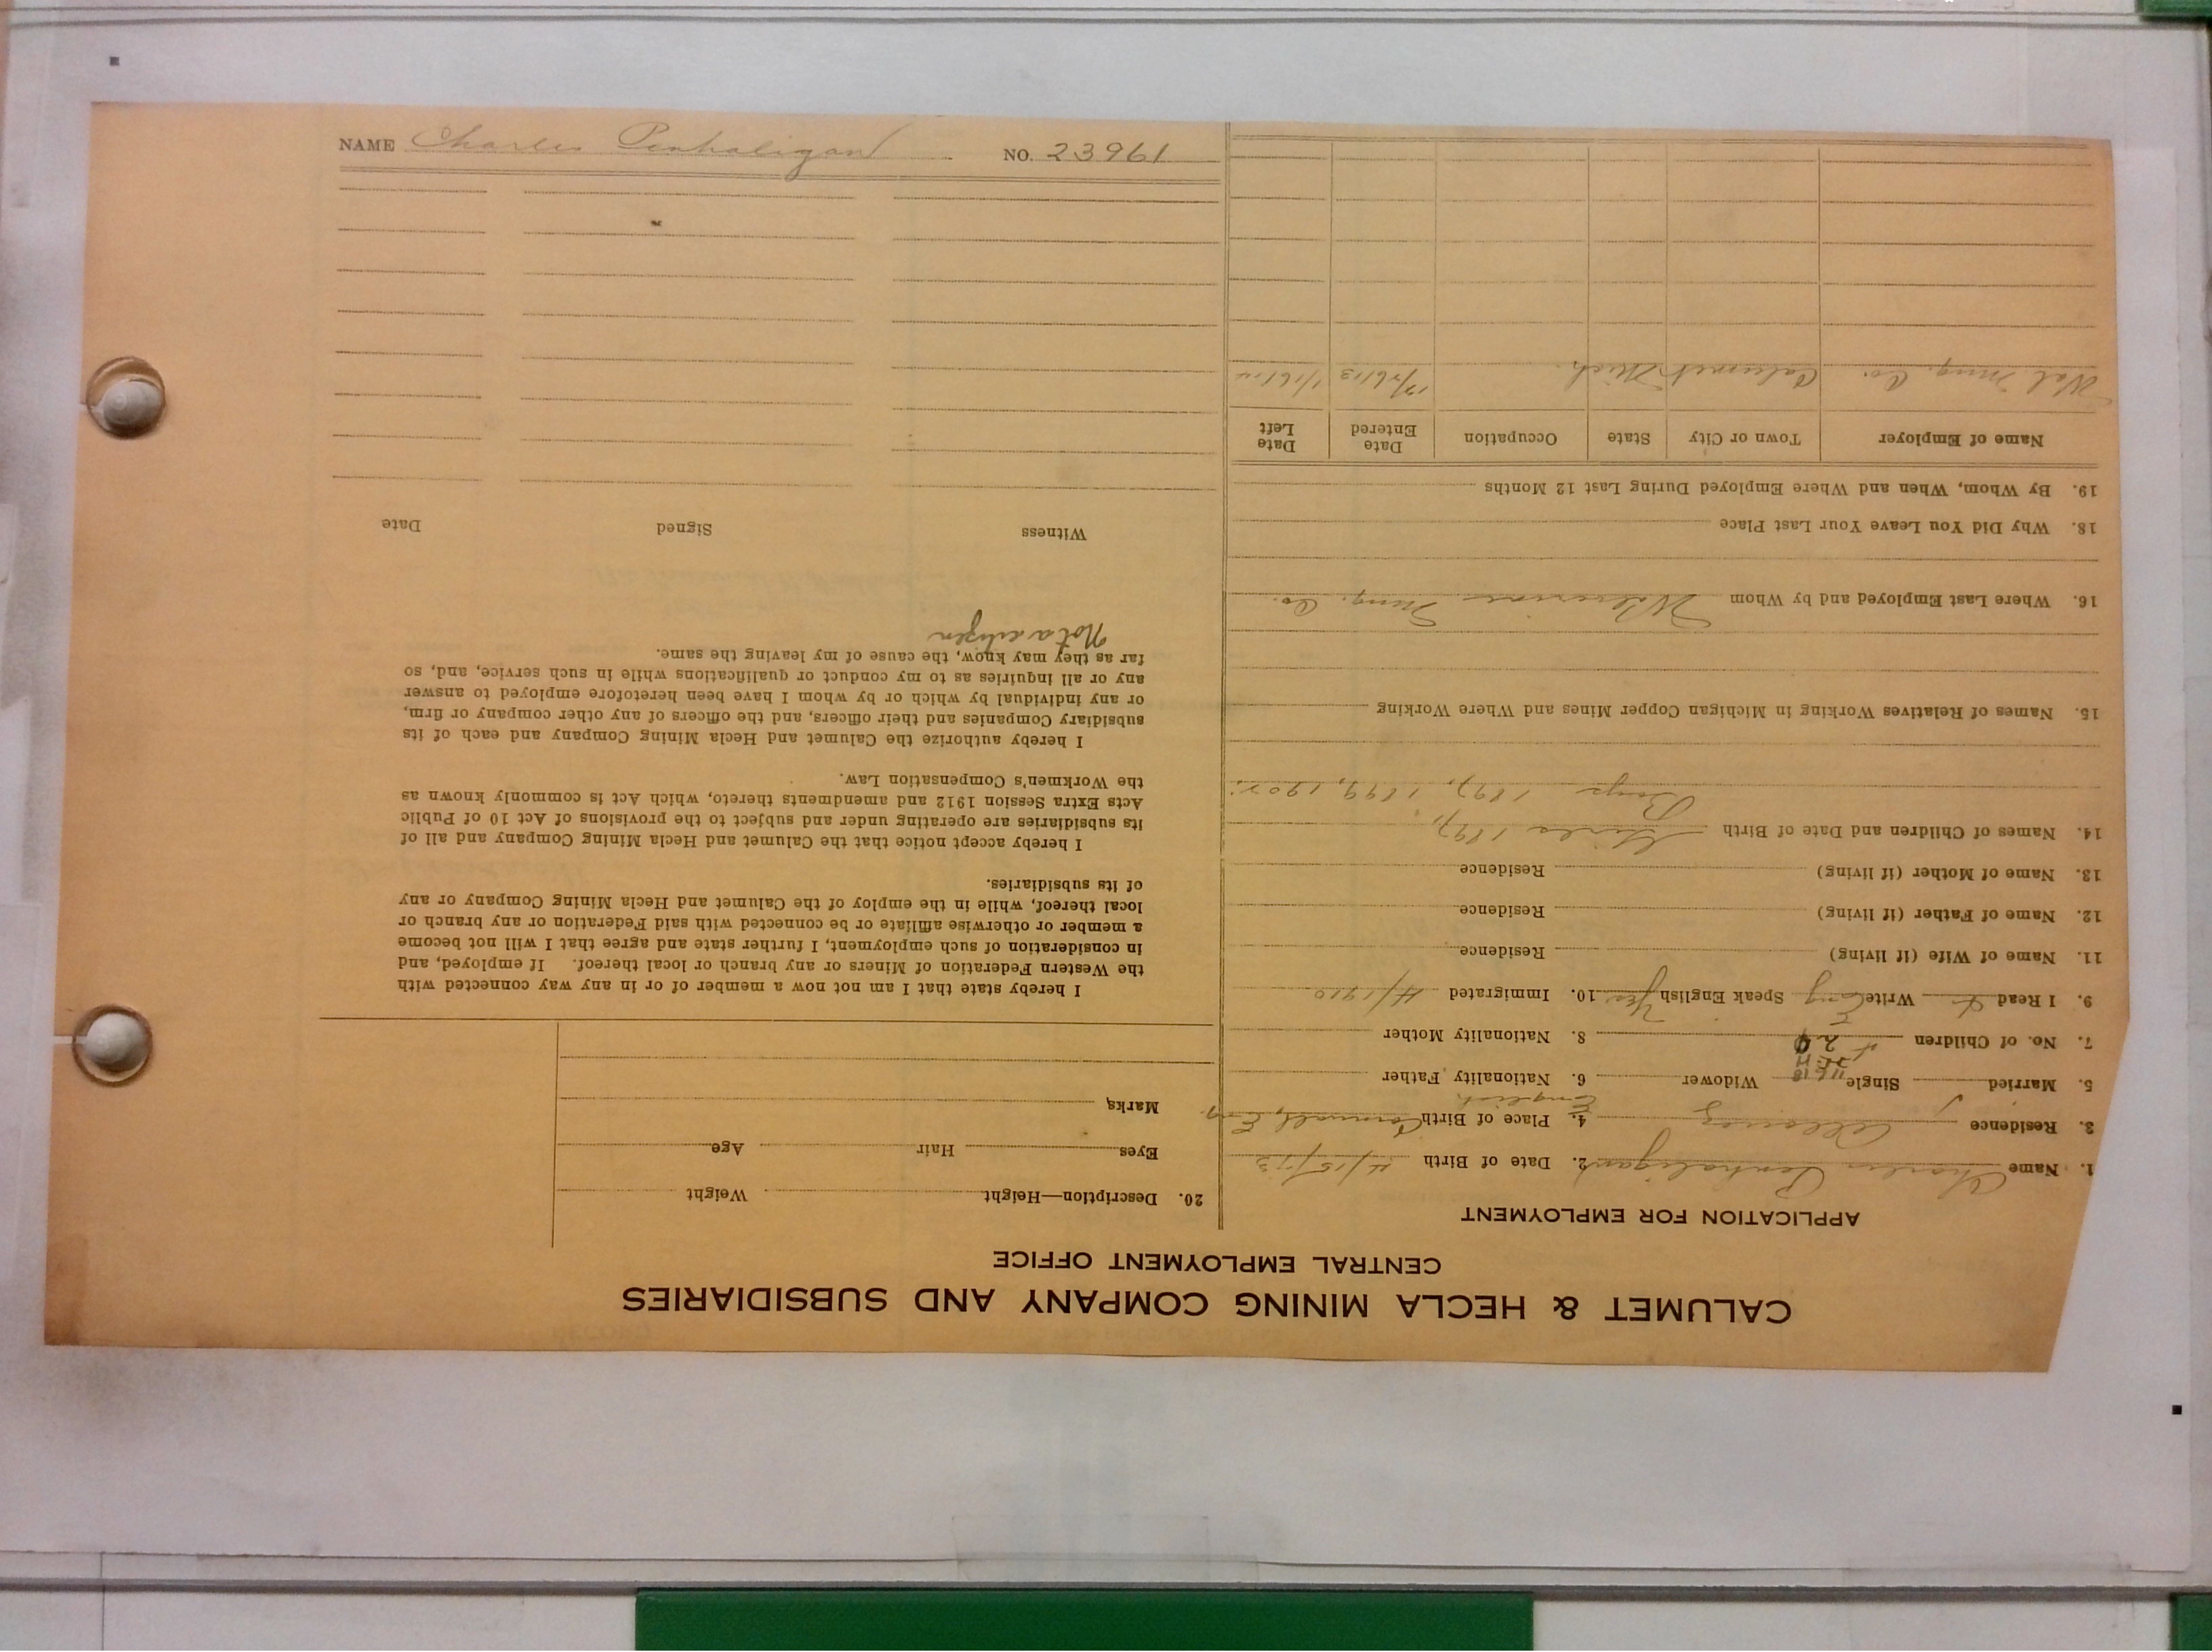 CALUMET & HECLA MINING COMPANY AND SUBSIDIARIES
CENTRAL EMPLOYMENT OFFICE
APPLICATION FOR EMPLOYMENT
1. Name Charles Penhaligan 2. Date of Birth 4/15/73
3. Residence Allouez 4. Place of Birth Cornwall, Eng
5. Married Single Widower 6. Nationality Father English
7. No. of Children 8. Nationality Mother
9. I Read & Write Eng Speak English Yes 10. Immigrated 4/1910
11. Name of Wife (if living) Residence
12. Name of Father (if living) Residence
13. Name of Mother (if living) Residence
14. Names of Children and Date of Birth Girls 1897,
Boys 1897, 1899, 1902.
15. Names of Relatives Working in Michigan Copper Mines and Where Working
16. Where Last Employed and by Whom Wolverine Mng. Co.
18. Why Did You Leave Your Last Place
19. By Whom, When and Where Employed During Last 12 Months
Name of Employer Town or City State Occupation Date Entered Date Left
Wol Mng. Co. Calumet Mich. 1/16/14
20. Description—Height Weight
Eyes Hair Age
Marks
I hereby state that I am not now a member of or in any way connected with
the Western Federation of Miners or any branch or local thereof. If employed, and
in consideration of such employment, I further state and agree that I will not become
a member or otherwise affiliate or be connected with said Federation or any branch or
local thereof, while in the employ of the Calumet and Hecla Mining Company or any
of its subsidiaries.
I hereby accept notice that the Calumet and Hecla Mining Company and all of
its subsidiaries are operating under and subject to the provisions of Act 10 of Public
Acts Extra Session 1912 and amendments thereto, which Act is commonly known as
the Workmen's Compensation Law.
I hereby authorize the Calumet and Hecla Mining Company and each of its
subsidiary Companies and their officers, and the officers of any other company or firm,
or any individual by which or by whom I have been heretofore employed to answer
any or all inquiries as to my conduct or qualifications while in such service, and, so
far as they may know, the cause of my leaving the same.
Not a citizen
Witness Signed Date
NAME Charles Penhaligan NO. 23961